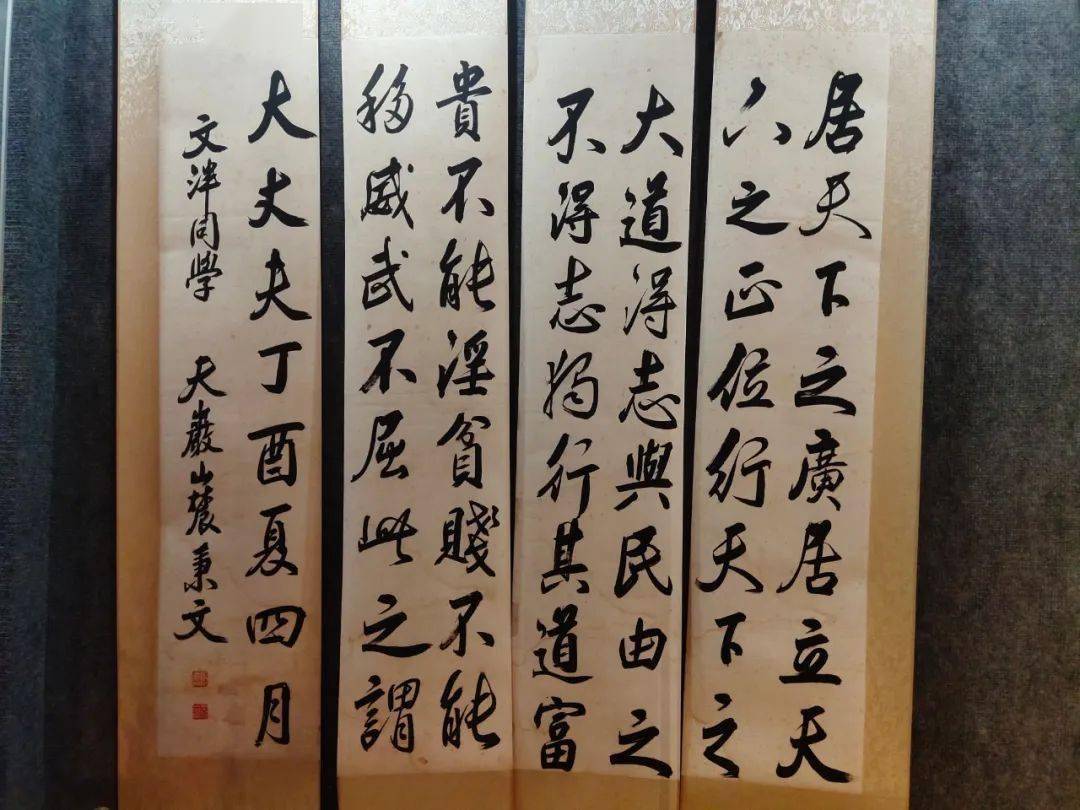 居天下之廣居立天
下之正位行天下之
大道得志與民由之
不得志獨行其道富
貴不能淫貧賤不能
移威武不屈此之謂
大丈夫丁酉夏四月
文泮同學 天巖山農秉文